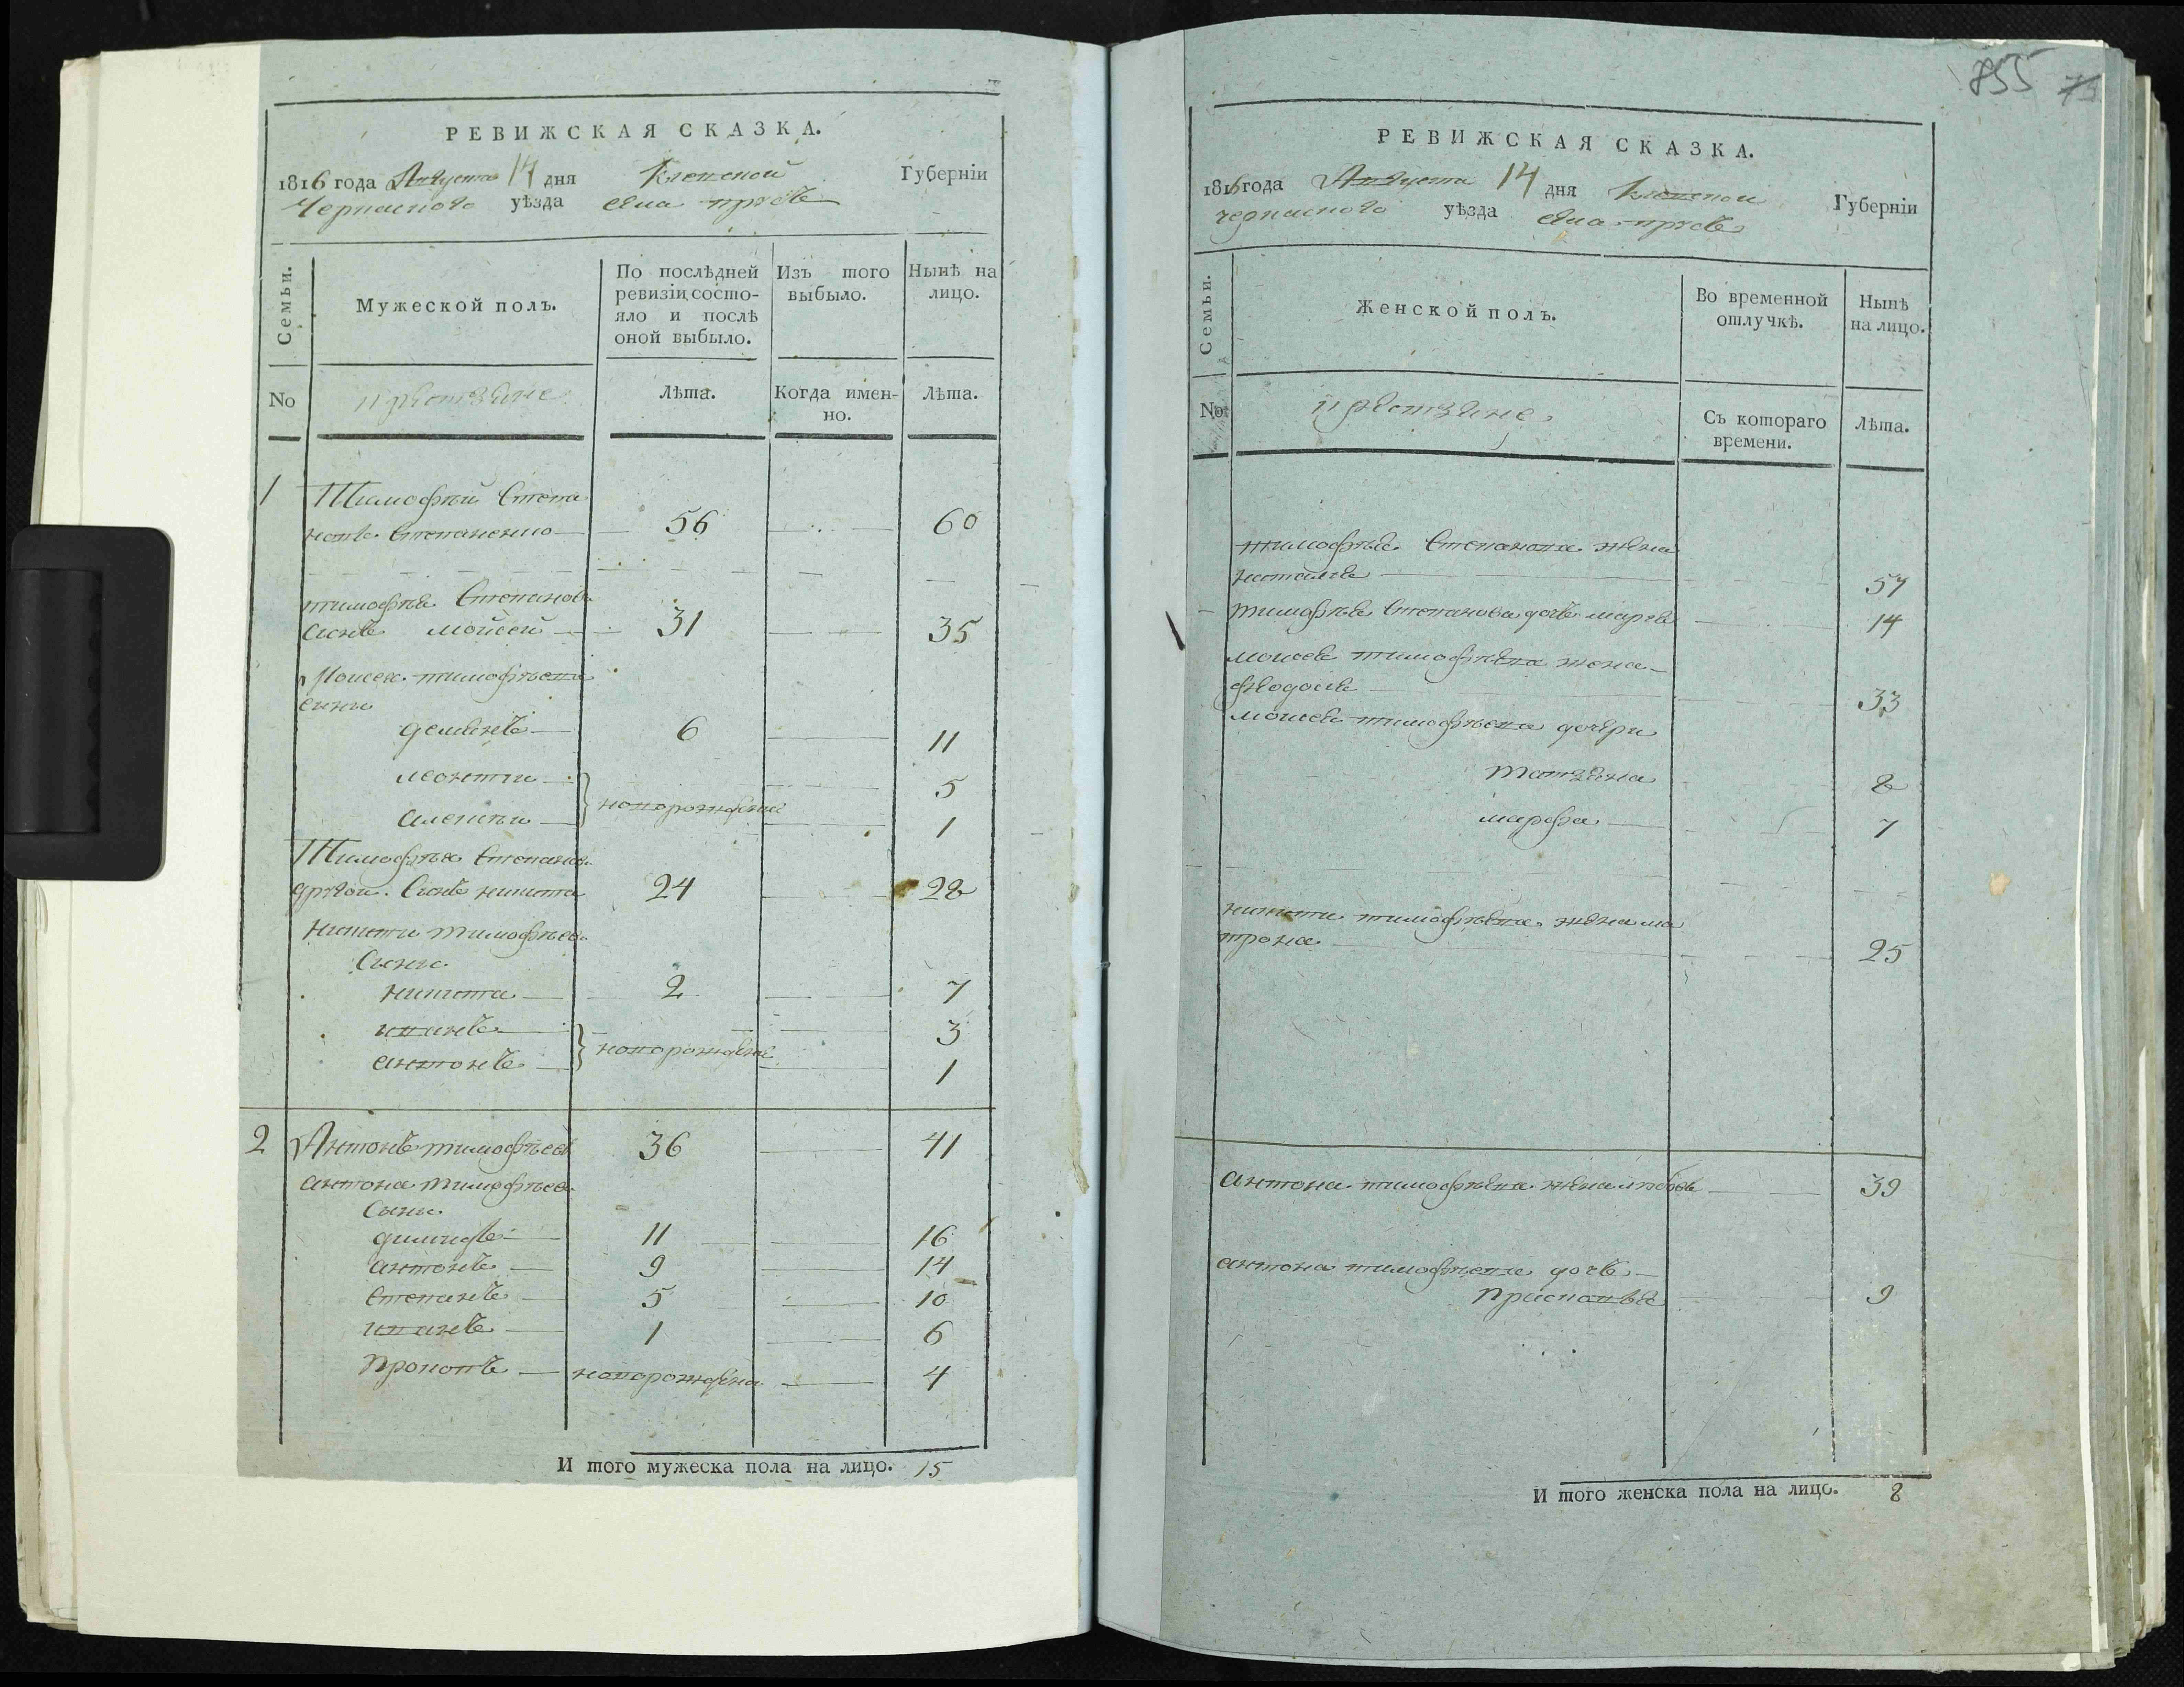 РЕВИЖСКАЯ СКАЗКА.
1816 года Августа 14 дня Киевской Губерніи
Черкаского уѣзда села
Семьи.
Мужеской полъ.
По послѣдней ревизіи состо-
яло и послѣ
оной выбыло.
Изъ того
выбыло.
Нынѣ на
лицо.
No
крестьяне
Лѣта.
Когда имен-
но.
Лѣта.
1 Тимофѣй Степа
новъ Степаненко 56 60
тимофѣя Степанова
сынъ мойсей 31 35
Моисея тимофѣева
сыны
демянъ 6 11
леонтий 5
новорождение
алексѣй 1
Тимофѣя Степанова
другой Сынъ никита 24 28
Никиты тимофѣева
Сыны
никита 2 7
иванъ 3
новорождение
антонъ 1
2 Антонъ тимофѣевъ 36 41
антона тимофѣева
Сыны
димидъ 11 16
антонъ 9 14
Степанъ 5 10
иванъ 1 6
Прокопъ новорожденъ 4
И того мужеска пола на лицо. 15
855
РЕВИЖСКАЯ СКАЗКА.
1816 года Августа 14 дня Киевской Губерніи
черкаского уѣзда села
Семьи.
Женской полъ.
Во временной
отлучкѣ.
Нынѣ
на лицо.
No
крестьяне
Съ котораго
времени.
Лѣта.
тимофѣя Степанова жена
наталия 57
тимофѣя Степанова дочь марья 14
моисея тимофѣева жена
феодосия 33
моисея тимофѣева дочери
татьяна 8
марфа 7
никиты тимофѣева жена ма
трона 25
антона тимофѣева жена любовь 39
антона тимофѣева дочь
Прасковья 9
И того женска пола на лицо. 8